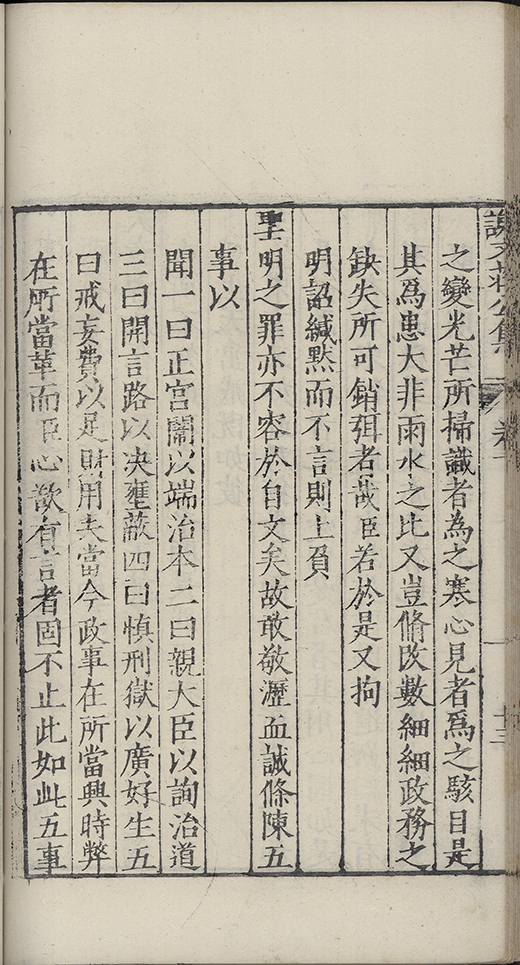 之變光芒所掃識者為之寒心見者爲之駭目是
其爲患大非雨水之比又豈脩改數細細政務之
缺失所可銷弭者哉臣若於是又拘
明詔緘默而不言則上負
聖明之罪亦不容於自文矣故敢敬瀝血誠條陳五
事以
聞一曰正宫闈以端治本二曰親大臣以詢治道
三曰開言路以决壅蔽四曰慎刑獄以廣好生五
曰戒妄費以足財用夫當今政事在所當興時弊
在所當革而臣心欲有言者固不止此如此五事